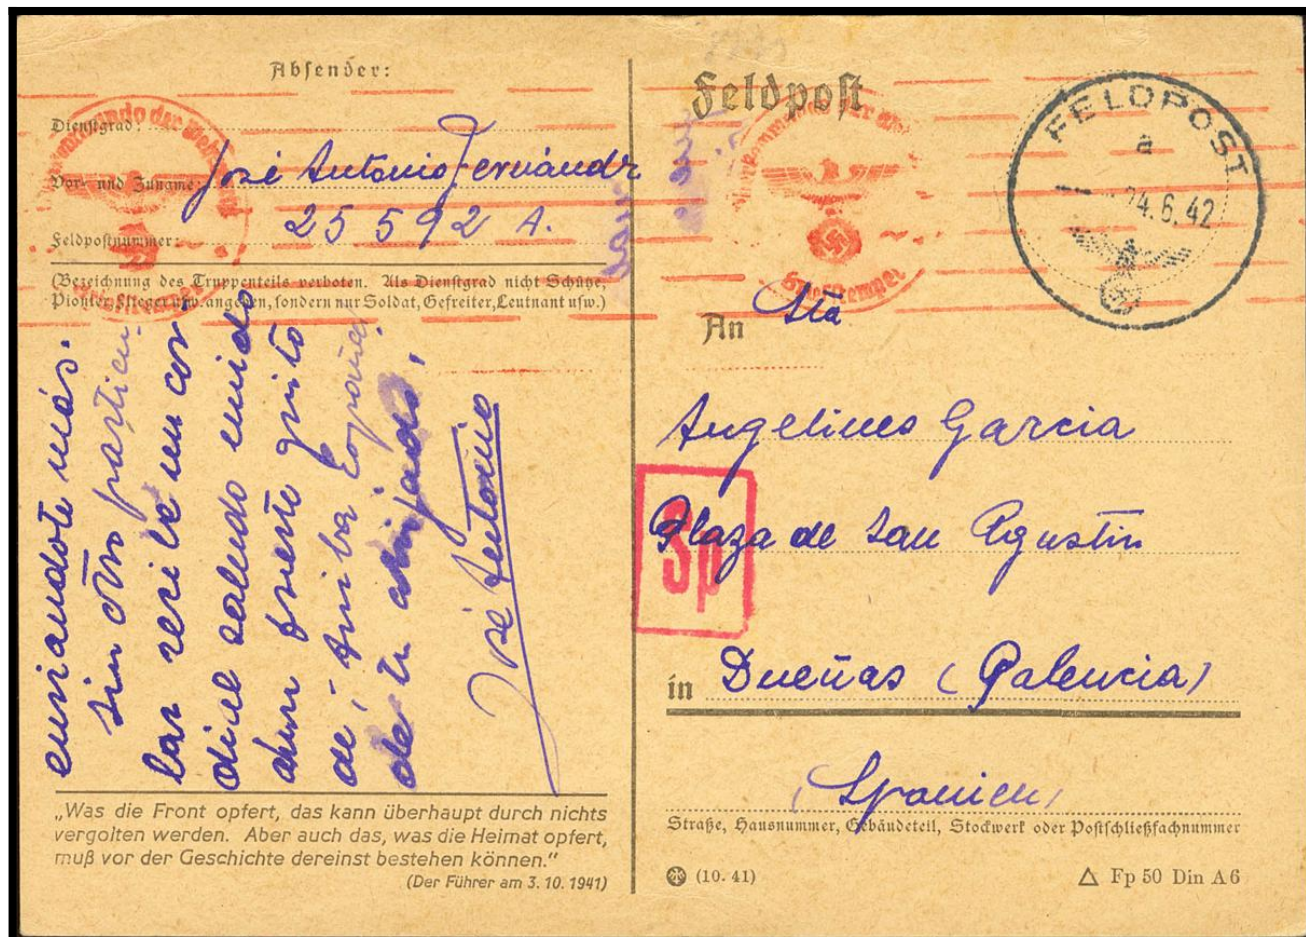 Absender:
Dienstgrad:
Vor- und Zuname: José Antonio Fernández
Feldpostnummer: 25592 A.
(Bezeichnung des Truppenteils verboten. Als Dienstgrad nicht Schütze,
Pionier, Flieger usw. angeben, sondern nur Soldat, Gefreiter, Leutnant usw.)
enviandote más.
sin otro particu-
lar recibe un cor-
dial saludo unido
a un fuerte grito
de ¡Arriba España!
de tu ahijado,
José Antonio
„Was die Front opfert, das kann überhaupt durch nichts
vergolten werden. Aber auch das, was die Heimat opfert,
muß vor der Geschichte dereinst bestehen können.“
(Der Führer am 3. 10. 1941)
Feldpost
FELDPOST
a
24.6.42
Oberkommando der Wehrmacht
Briefstempel
An Sta
Angelines Garcia
Sp
Plaza de San Agustin
in Dueñas (Palencia)
(Spanien)
Straße, Hausnummer, Gebäudeteil, Stockwerk oder Postschließfachnummer
(10. 41)
Fp 50 Din A6